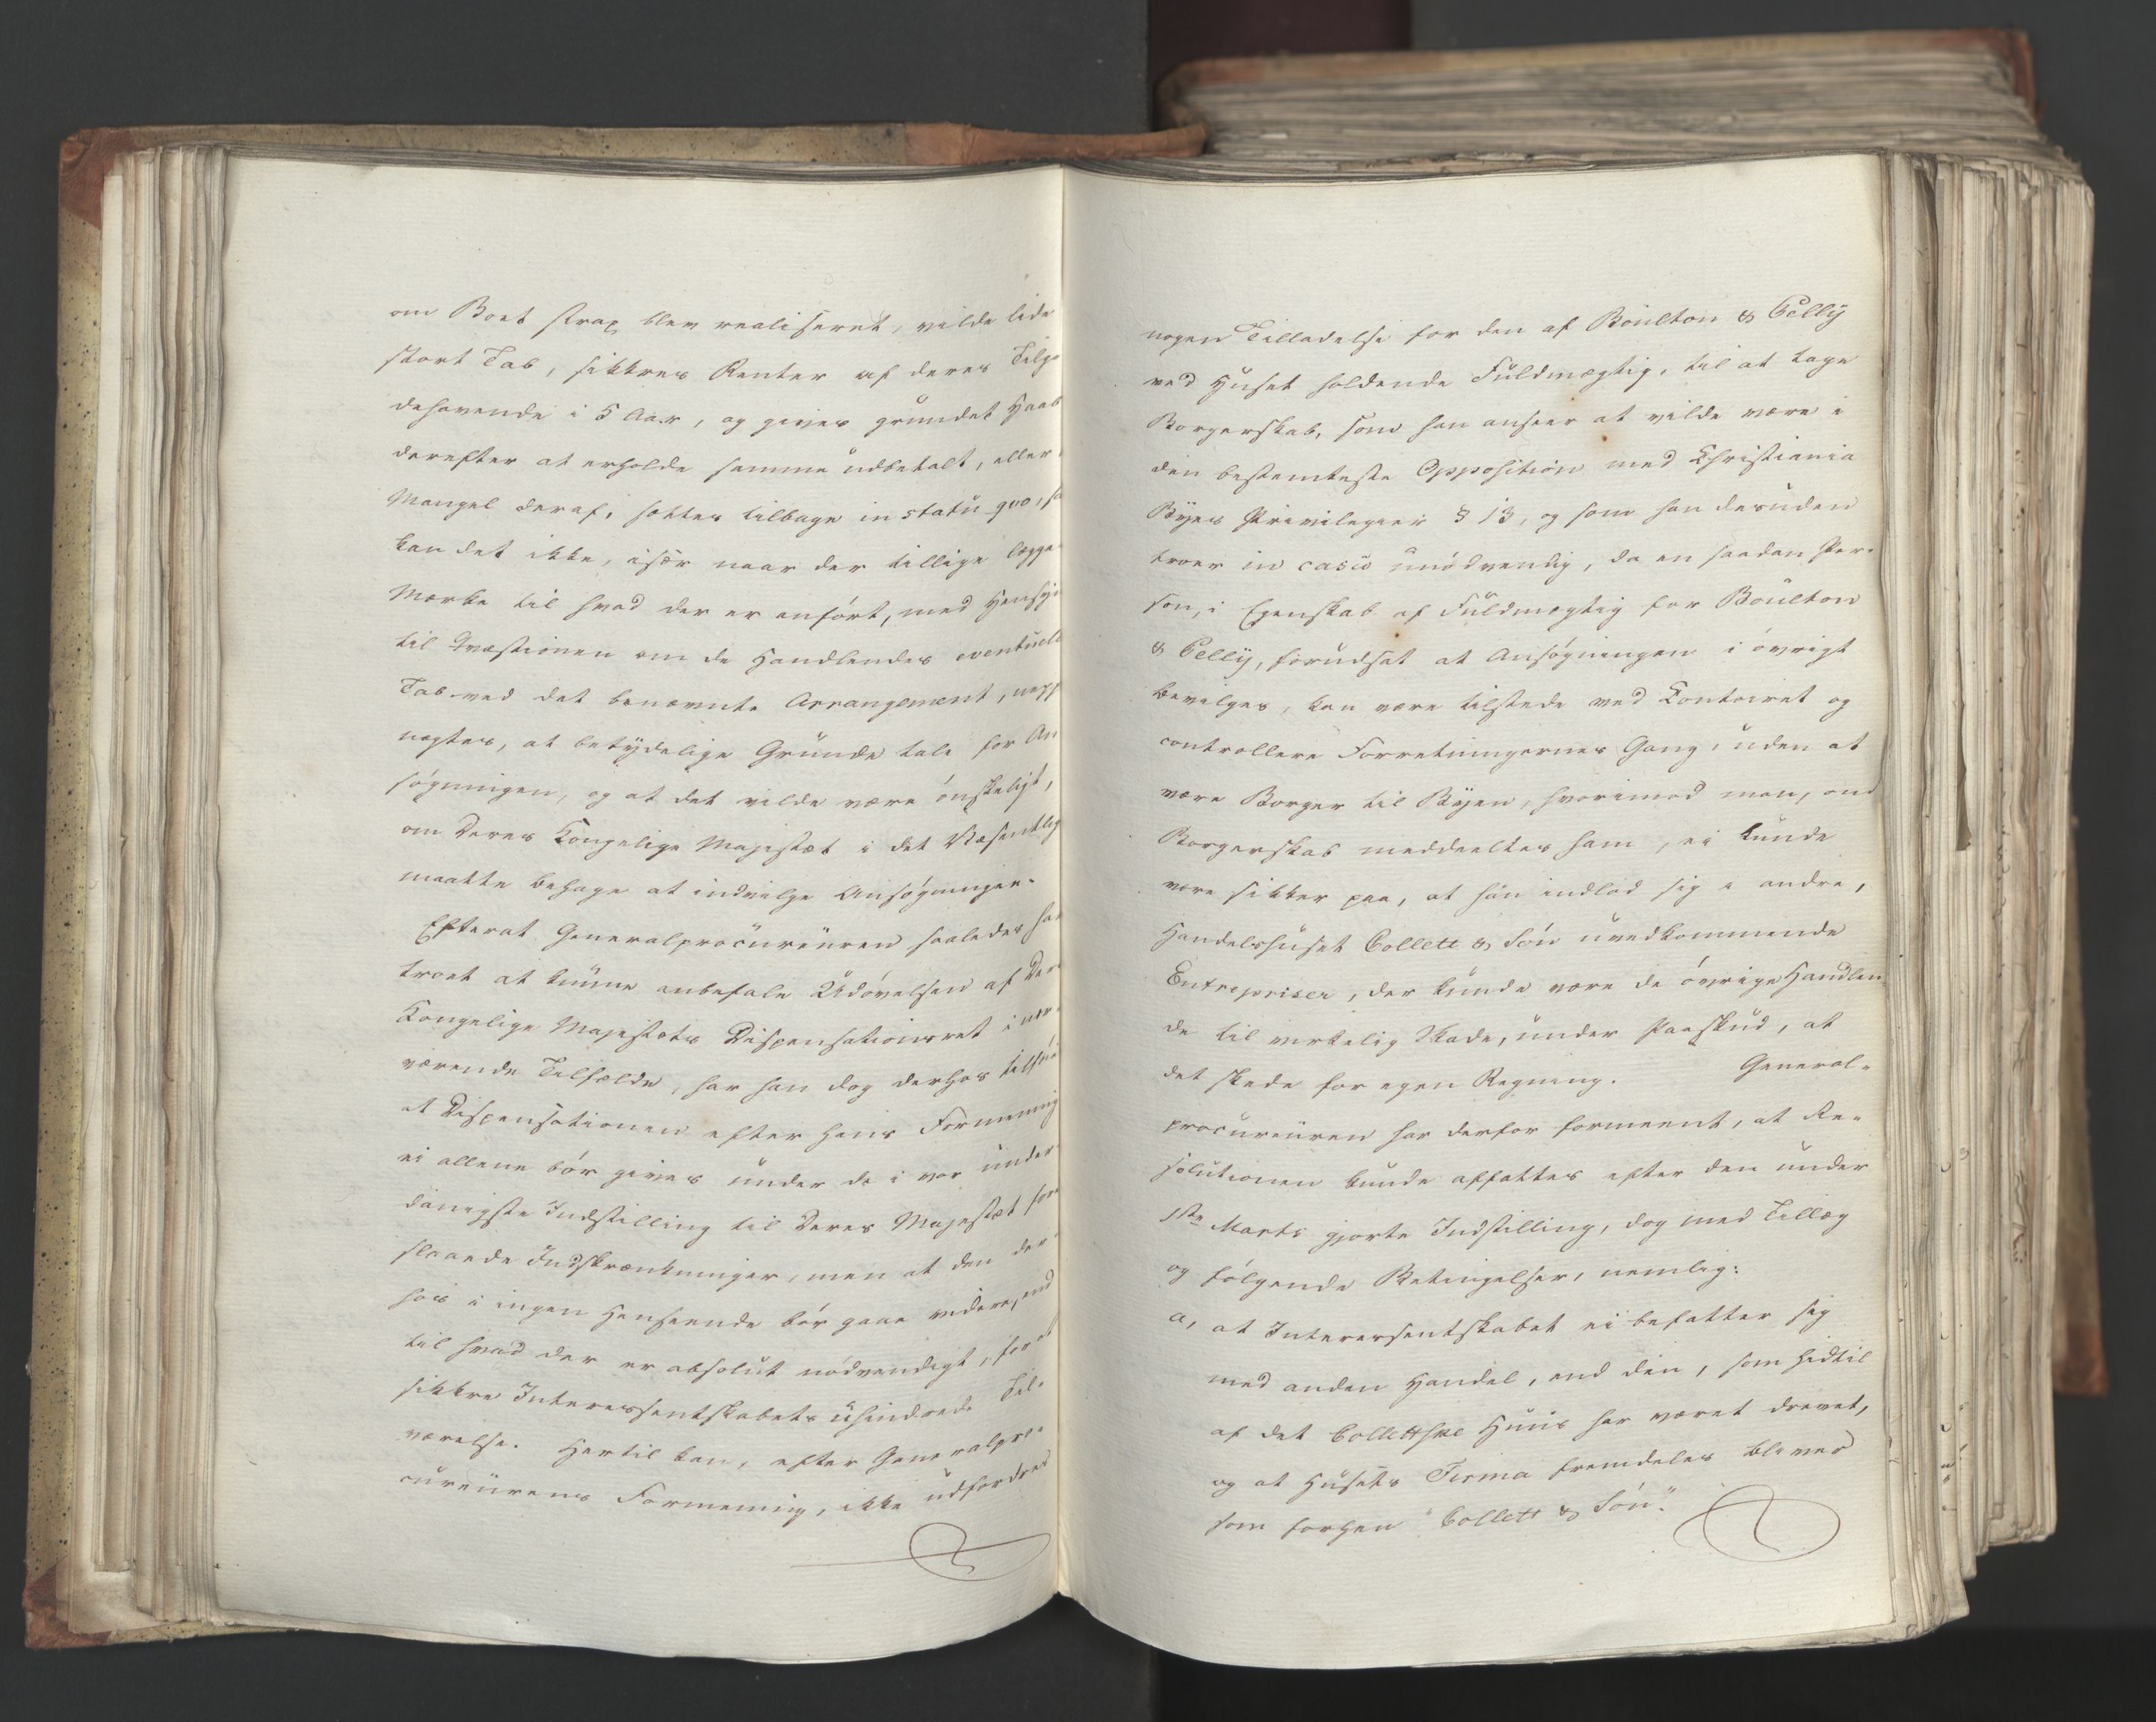 om Boet strax blev realiseret, vilde lide
stort Tab, sikkres Renter af deres Tilgo-
dehavende i 5 Aar, og gives grundet Haab
derefter at erholde samme udbetalt, eller i
Mangel deraf, sættes tilbage in statu quo, saa
kan det ikke, især naar der tillige lægges
Mærke til hvad der er anført, med Hensyn
til Qvæstionen om de Handlendes eventuelle
Tab ved det benævnte Arrangement, nepp
negtes, at betydelige Grunde tale for An
søgningen, og at det vilde være ønskeligt,
om Deres Kongelige Majestæt i det Væsentlig
maatte behage at indvilge Ansøgningen.
Efterat Generalprocureuren saaledes har
troet at kunne anbefale Udøvelsen af De
Kongelige Majestæts Dispensationsret i nær-
værende Tilfælde, har han dog derhos tilføi
at Dispensationen efter hans Formening
ei allene bør gives under de i vor under
danigste Indstilling til Deres Majestæt fore
slaaede Indskrænkninger, men at den der-
hos i ingen Henseende bør gaae videre, end
til hvad der er absolut nødvendigt, for at
sikkre Interessentskabets uhindrede Til-
værelse. Hertil kan, efter Generalpro-
cureurens Formening, ikke udfordres
nogen Tilladelse for den af Boulton & Pelly
ved Huset holdende Fuldmægtig, til at tage
Borgerskab, som han anseer at vilde være i
den bestemteste Opposition med Christiania
Byes Privilegier § 13, og som han desuden
troer in casu unødvendig, da en saadan Per-
son, i Egenskab af Fuldmægtig for Boulton
& Pelly, forudsat at Ansøgningen i øvrigt
bevilges, kan være tilstede ved Contoiret og
controllere Forretningernes Gang, uden at
være Borger til Byen, hvorimod man, om
Borgerskab meddeeltes ham, ei kunde
være sikker paa, at han indlod sig i andre,
Handelshuset Collett & Søn uvedkommende
Entrepriser, der kunde være de øvrige Handlen
de til virkelig Skade, under Paaskud, at
det skede for egen Regning. General-
procureuren har derfor formeent, at Re-
solutionen kunde affattes efter den under
1ste Marts gjorte Indstilling, dog med Tillæg
og følgende Betingelser, nemlig:
a, at Interessentskabet ei befatter sig
med anden Handel, end den, som hidtil
af det Collettske Huus har været drevet,
og at Husets Firma fremdeles bliver
som forhen "Collett & Søn."